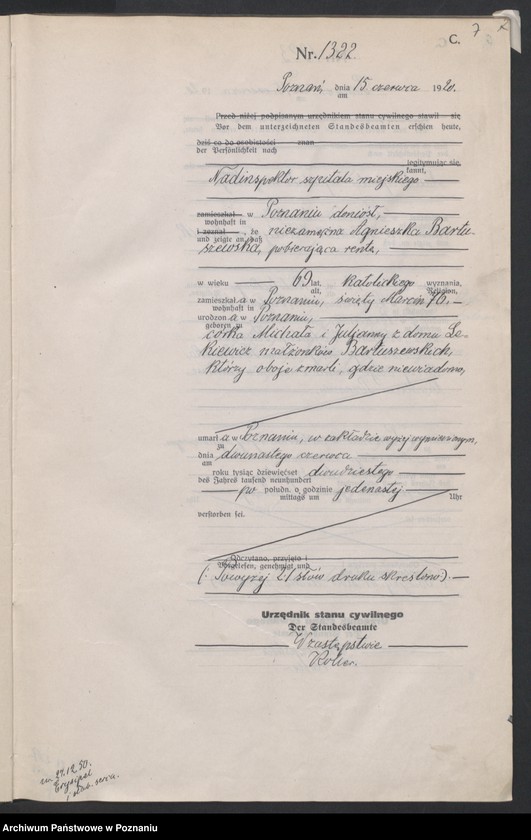 7
C.
Nr. 1322
Poznań, dnia 15 czerwca 1920.
am
Przed niżej podpisanym urzędnikiem stanu cywilnego stawił się
Vor dem unterzeichneten Standesbeamten erschien heute,
dziś co do osobistości znan
der Persönlichkeit nach
legitymując się,
kannt,
Nadinspektor szpitala miejskiego
zamieszkał w Poznaniu doniósł,
wohnhaft in
i zeznał, że niezamężna Agnieszka Bartu-
und zeigte an, daß
szewska, pobierająca rentę,
w wieku 69 lat, katolickiego wyznania,
alt, Religion,
zamieszkał a w Poznaniu, święty Marcin 76.
wohnhaft in
urodzon a w Poznaniu,
geboren zu
córka Michała i Julianny z domu Le-
kiewicz małżonków Bartuszewskich,
którzy oboje zmarli, gdzie niewiadomo,
umarł a w Poznaniu, w zakładzie wyżej wymienionym,
zu
dnia dwunastego czerwca
am
roku tysiąc dziewięćset dwudziestego
des Jahres tausend neunhundert
po połudn. o godzinie jedenastej
mittags um Uhr
verstorben sei.
Odczytano, przyjęto i
Vorgelesen, genehmigt und
(: Powyżej 21 słów druku skreślono:)
Urzędnik stanu cywilnego
Der Standesbeamte
W zastępstwie
um 27.12.50.
Archiwum Państwowe w Poznaniu